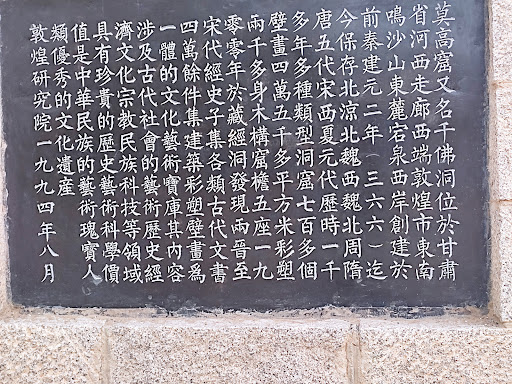 莫高窟又名千佛洞位於甘肅
省河西走廊西端敦煌市東南
鳴沙山東麓宕泉西岸創建於
前秦建元二年(三六六)迄
今保存北涼北魏西魏北周隋
唐五代宋西夏元代歷時一千
多年多種類型洞窟七百多個
壁畫四萬五千多平方米彩塑
兩千多身木構窟檐五座一九
零零年於藏經洞發現兩晉至
宋代經史子集各類古代文書
四萬餘件集建築彩塑壁畫爲
一體的文化藝術寶庫其內容
涉及古代社會的藝術歷史經
濟文化宗教民族科技等領域
具有珍貴的歷史藝術科學價
值是中華民族的藝術瑰寶人
類優秀的文化遺産
敦煌研究院一九九四年八月